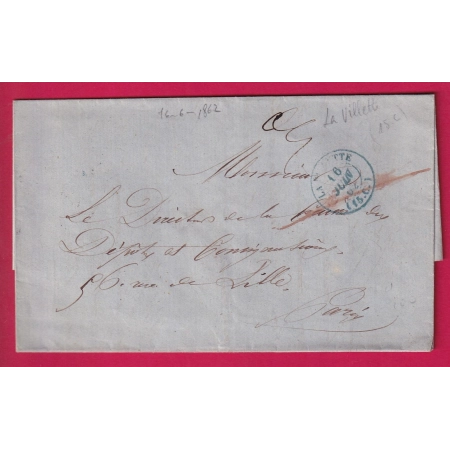 16-6-1862
La Villette
(15 c)
Monsieur
LA VILLETTE
16
JUIN
62
(15.C.)
Le Directeur de la Caisse des
Dépôts et Consignations
56. rue de Lille.
Paris